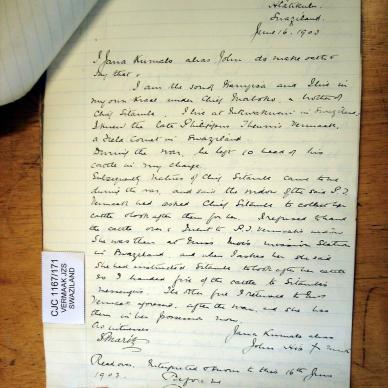 Hlatikulu
Swaziland.
June 16. 1903
I Jana Kumalo alias John do make oath &
say that:
I am the son of and I live in
my own Kraal under Chief Maboko, a brother of
Chief Sitambi. I live at in Swaziland
I knew the late Philippus Theunis Vermaak,
a Field Cornet in Swaziland.
During the war, he left 10 head of his
cattle in my charge.
Subsequently natives of Chief Sitambi came to me
during the war, and said the widow of the said P.T.
Vermaak had asked Chief Sitambi to collect her
cattle & look after them for her. I refused to hand
the cattle over & I went to P.T. Vermaak's widow
She was then at mission station
in Swaziland, and when I asked her she said
she had instructed Sitambi to look after her cattle
so I handed five of the cattle to Sitambi's
messengers. The other five I returned to
Vermaak after the war, and she has
them in her possession now.
As witnesses
Jana Kumalo alias
John His X mark
Read over, Interpreted & sworn to this 16th June
1903. Before me
CJC 1167/171
VERMAAK JZS
SWAZILAND